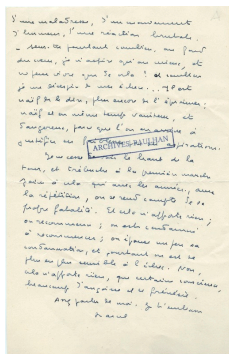 d'une maladresse, d'un mouvement
d'humeur, d'une réaction brutale.
sens-tu pourtant combien, au fond
du cœur, je n'aspire qu'au mieux, et
ne peux vivre que de cela ? et combien
je me désespère de mes échecs... C'est
naïf de le dire, plus encore de l'éprouver ;
naïf et en même temps vaniteux, et
dangereux, parce que l'on en arrive à
justifier ses par ses aspirations.
ARCHIVES PAULHAN
le haut de la
tour, et trébuche à la première marche
grâce à cela que avec les années, avec
la répétition, on se rend compte de sa
propre fatalité. Et cela n'apporte rien ;
on recommence ; on est condamné
à recommencer ; on épuise un peu sa
condamnation, et pourtant on est de
plus en plus sensible à l'échec. Non,
cela n'apporte rien, que certaine conscience,
beaucoup d'angoisse et de
parle de moi. Je t'embrasse
Marcel